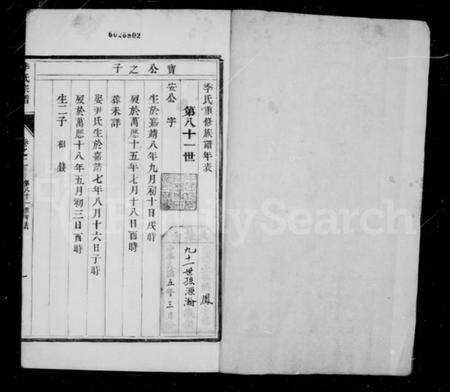 6026802
李氏重修族譜年表
第八十一世
寶公之子
安公 字
生於嘉靖八年九月初十日戌時
歿於萬歷十五年七月十八日酉時
葬未詳
娶尹氏生於嘉靖七年八月十六日子時
歿於萬歷十八年五月初三日酉時
生二子
九十一世孫
鳳
五年三
FamilySearch